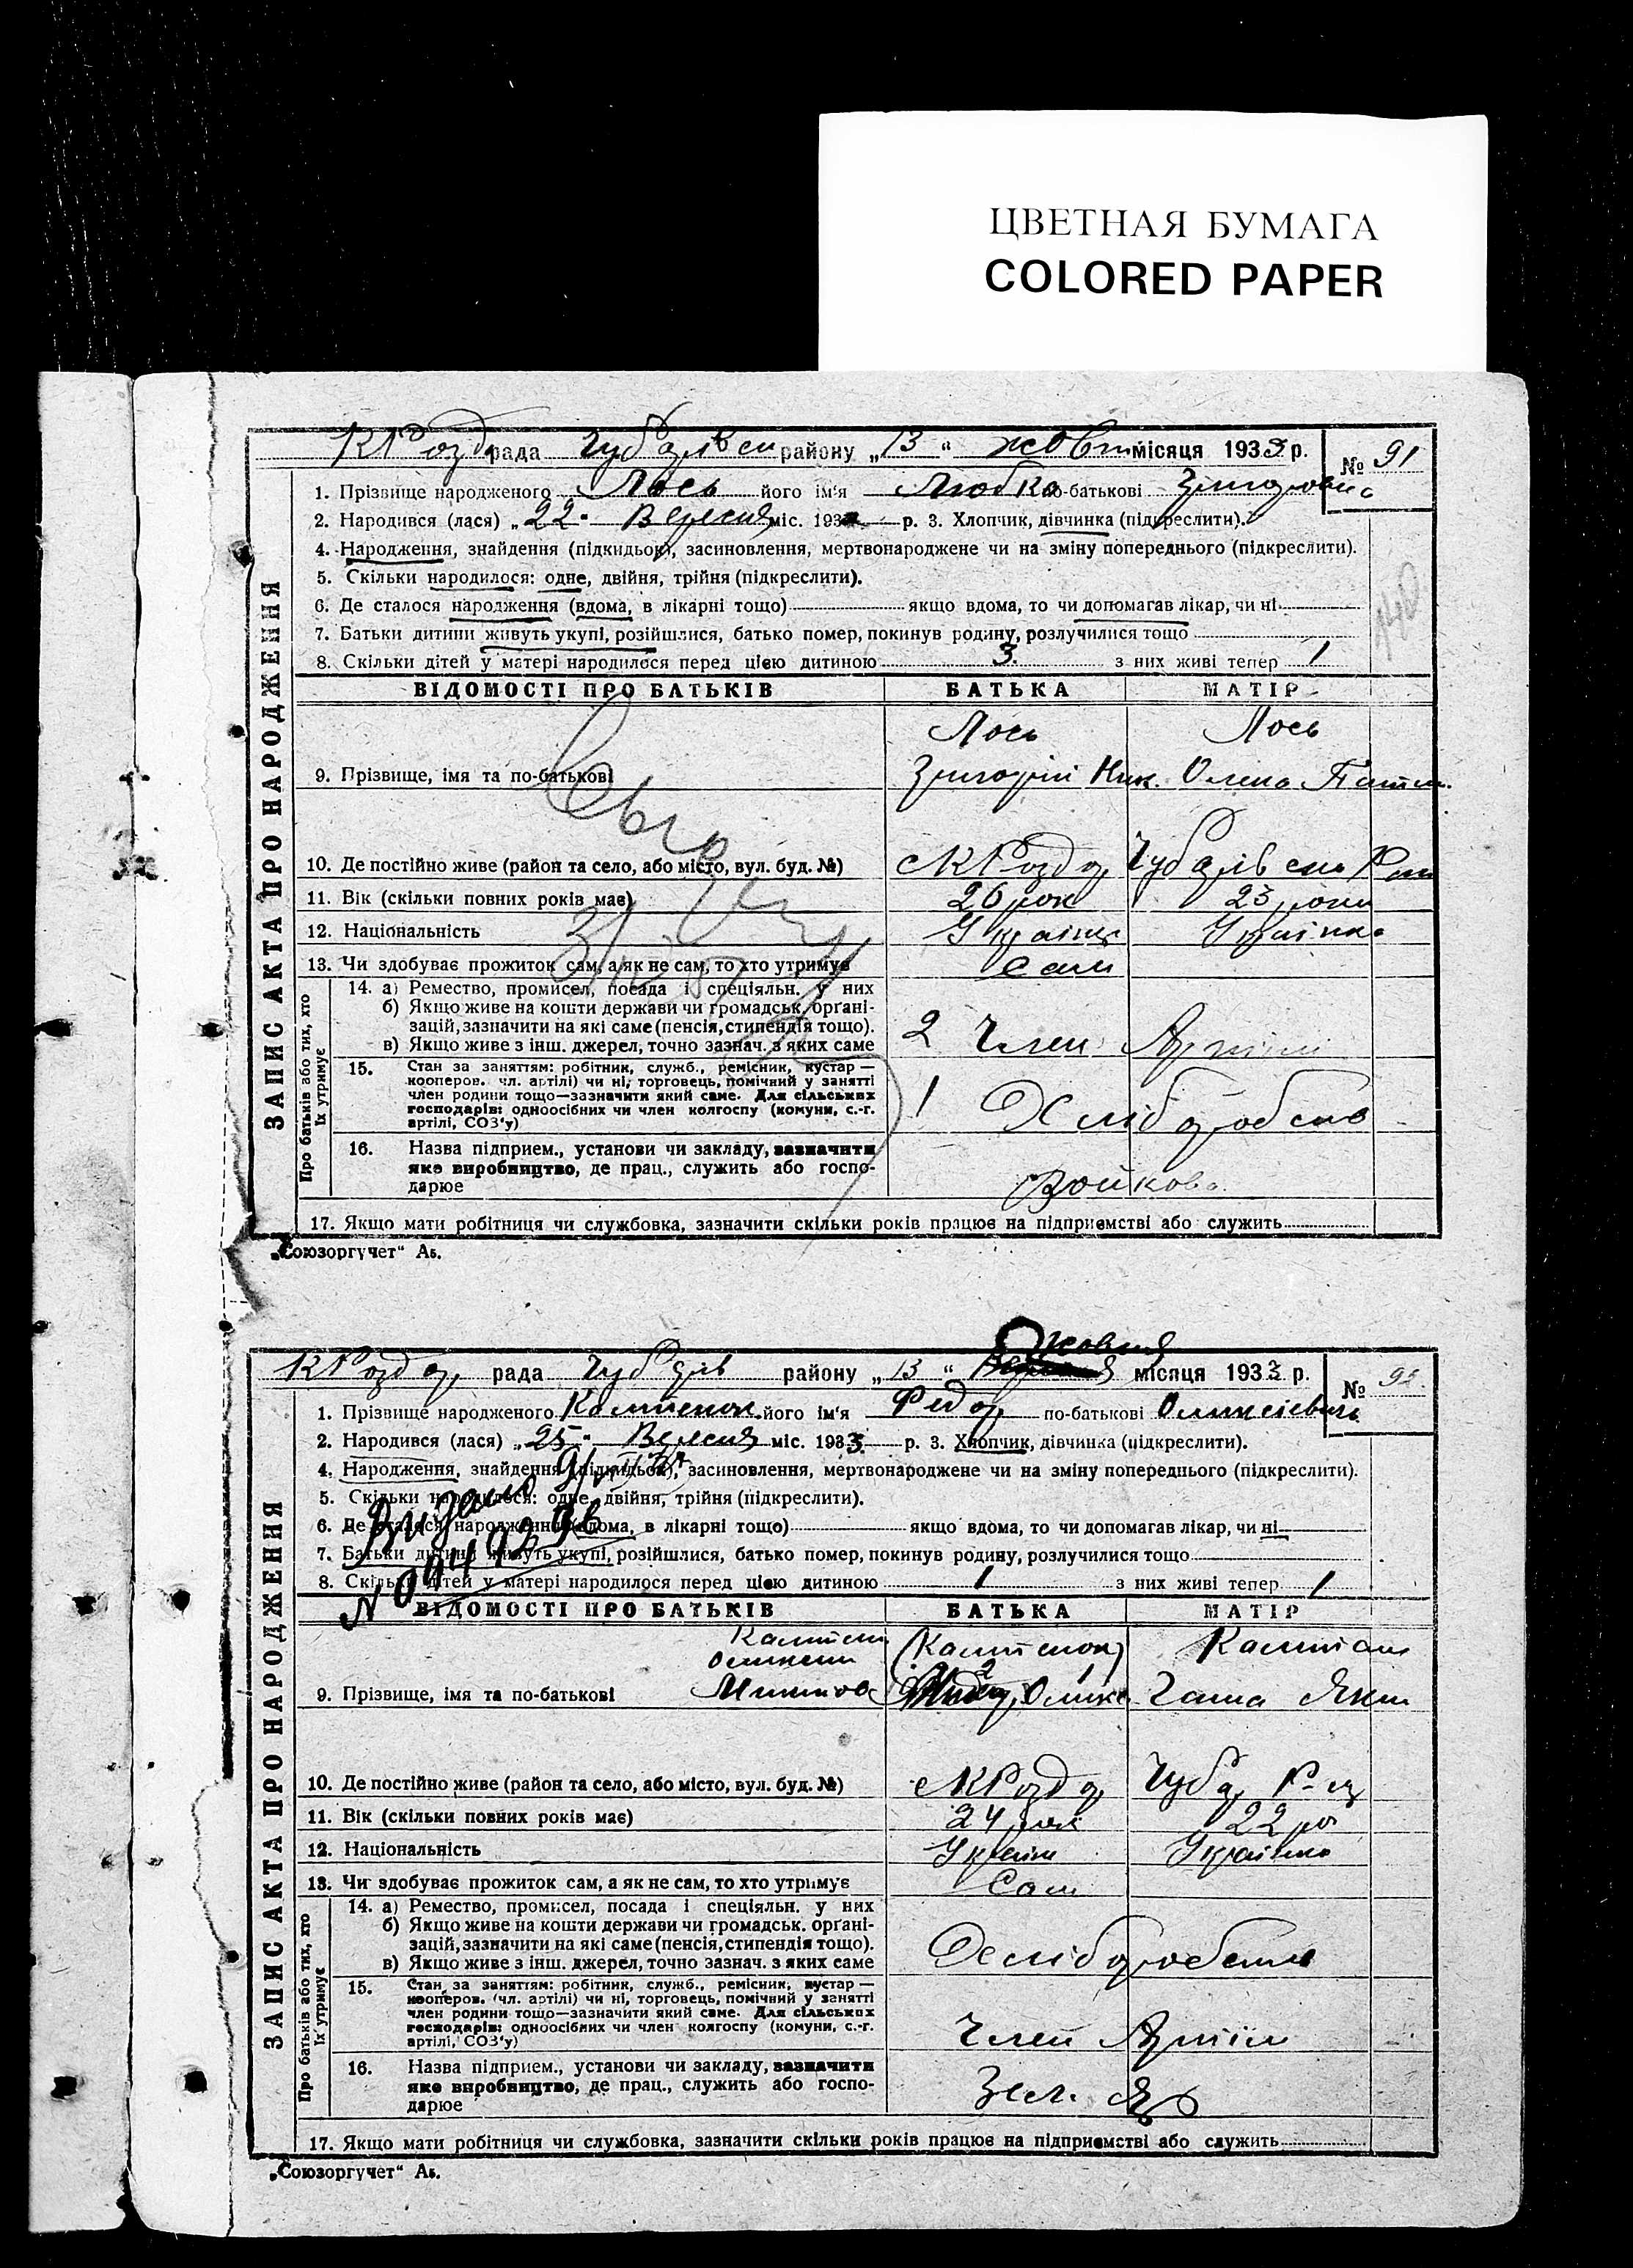 ЦВЕТНАЯ БУМАГА
COLORED PAPER
КРоздор рада Чубарівськ району „13“ жовтн місяця 1933 р. № 91
1. Прізвище народженого Лось його ім'я Любка по-батькові Григоровна
2. Народився (лася) „22“ Вересня міс. 193 р. 3. Хлопчик, дівчинка (підкреслити).
4. Народження, знайдення (підкидьок), засиновлення, мертвонароджене чи на зміну попереднього (підкреслити).
5. Скільки народилося: одне, двійня, трійня (підкреслити).
6. Де сталося народження (вдома, в лікарні тощо) якщо вдома, то чи допомагав лікар, чи ні
7. Батьки дитини живуть укупі, розійшлися, батько помер, покинув родину, розлучилися тощо
8. Скільки дітей у матері народилося перед цією дитиною 3. з них живі тепер 1
ЗАПИС АКТА ПРО НАРОДЖЕННЯ
ВІДОМОСТІ ПРО БАТЬКІВ БАТЬКА МАТІР
Лось Лось
9. Прізвище, імя та по-батькові Григорій Ник. Олена
10. Де постійно живе (район та село, або місто, вул. буд. №) сКРоздор Чубарівськ
11. Вік (скільки повних років має) 26 рок 23 роки
12. Національність Українц Українка
13. Чи здобуває прожиток сам, а як не сам, то хто утримує Сам
Про батьків або тих, хто їх утримує
14. а) Ремество, промисел, посада і спеціяльн. у них
б) Якщо живе на кошти держави чи громадськ. органі-
зацій, зазначити на які саме (пенсія, стипендія тощо).
в) Якщо живе з інш. джерел, точно зазнач. з яких саме 2 Член Артілі
15. Стан за заняттям: робітник, служб., ремісник, кустар —
кооперов. чл. артілі) чи ні, торговець, помічний у занятті
член родини тощо—зазначити який саме. Для сільських
господарів: одноосібних чи член колгоспу (комуни, с.-г.
артілі, СОЗ'у) 1 Хліборобство
16. Назва підприєм., установи чи закладу, зазначити
яке виробництво, де прац., служить або госпо-
дарює Войкова
17. Якщо мати робітниця чи службовка, зазначити скільки років працює на підприємстві або служить
„Союзоргучет“ Аб.
Жовтня
КРоздор рада Чубарів району „13“ місяця 1933 р. № 92
1. Прізвище народженого його ім'я Федор по-батькові Олексієвич
2. Народився (лася) „25“ Вересня міс. 1933. р. 3. Хлопчик, дівчинка (підкреслити).
4. Народження, знайдення (підкидьок), засиновлення, мертвонароджене чи на зміну попереднього (підкреслити).
5. Скільки народилося: одне, двійня, трійня (підкреслити).
6. Де сталося народження (вдома, в лікарні тощо) якщо вдома, то чи допомагав лікар, чи ні
7. Батьки дитини живуть укупі, розійшлися, батько помер, покинув родину, розлучилися тощо
8. Скільки дітей у матері народилося перед цією дитиною 1 з них живі тепер 1
ЗАПИС АКТА ПРО НАРОДЖЕННЯ
ВІДОМОСТІ ПРО БАТЬКІВ БАТЬКА МАТІР
9. Прізвище, імя та по-батькові
10. Де постійно живе (район та село, або місто, вул. буд. №) сКРоздор Чубар
11. Вік (скільки повних років має) 24 рок 22 ро
12. Національність Українка
13. Чи здобуває прожиток сам, а як не сам, то хто утримує Сам
Про батьків або тих, хто їх утримує
14. а) Ремество, промисел, посада і спеціяльн. у них
б) Якщо живе на кошти держави чи громадськ. органі-
зацій, зазначити на які саме (пенсія, стипендія тощо).
в) Якщо живе з інш. джерел, точно зазнач. з яких саме Хліборобство
15. Стан за заняттям: робітник, служб., ремісник, кустар —
кооперов. (чл. артілі) чи ні, торговець, помічний у занятті
член родини тощо—зазначити який саме. Для сільських
господарів: одноосібних чи член колгоспу (комуни, с.-г.
артілі, СОЗ'у) Член Артіли
16. Назва підприєм., установи чи закладу, зазначити
яке виробництво, де прац., служить або госпо-
дарює
17. Якщо мати робітниця чи службовка, зазначити скільки років працює на підприємстві або служить
„Союзоргучет“ Аб.